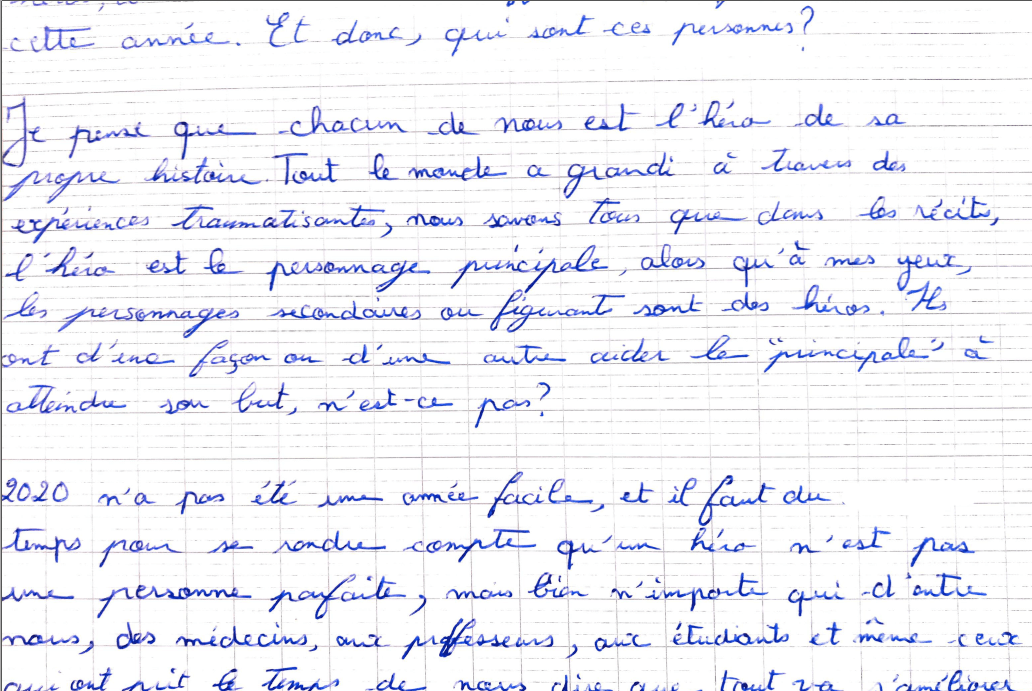 cette année. Et donc, qui sont ces personnes?
Je pense que chacun de nous est l'héro de sa
propre histoire. Tout le monde a grandi à travers des
expériences traumatisantes, nous savons tous que dans les récits,
l'héro est le personnage principale, alors qu'à mes yeux,
les personnages secondaires ou figurant sont des héros. Ils
ont d'une façon ou d'une autre aider le "principale" à
atteindre son but, n'est-ce pas?
2020 n'a pas été une année facile, et il faut du
temps pour se rendre compte qu'un héro n'est pas
une personne parfaite, mais bien n'importe qui d'entre
nous, des médecins, aux professeurs, aux étudiants et même ceux
qui ont prit le temps de nous dire que tout va s'améliorer